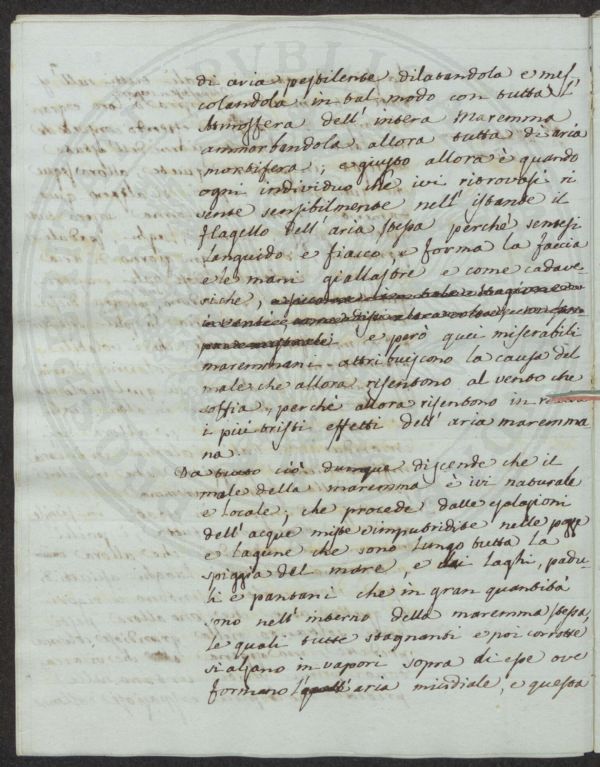 di aria pestilente dilatandola e mes,
colandola in tal modo con tutta l'
Atmosfera dell' intera Maremma
ammorbandola allora tutta di aria
morbifera; e giusto allora è quando
ogni individuo che ivi ritrovasi ri
sente sensibilmente nell' istante il
flagello dell' aria stessa perchè sentesi
languido e fiacco, e forma la faccia
e le mani giallastre e come cadave-
riche,
e però quei miserabili
maremmani attribuiscono la causa del
male che allora risentono al vento che
soffia, perchè allora risentono in
i più tristi effetti dell' aria maremma
na
Da tutto ciò dunque discende che il
male della maremma è ivi naturale
e locale; che procede dalle esalazioni
dell' acque miste e imputridite nelle pozze
e lagune che sono lungo tutta la
spiaggia del mare, e dai laghi, padu-
li e pantani che in gran quantità
sono nell' interno della maremma stessa,
le quali tutte stagnanti e poi corrotte
si alzano in vapori sopra di esse ove
formano l' aria micidiale, e questa